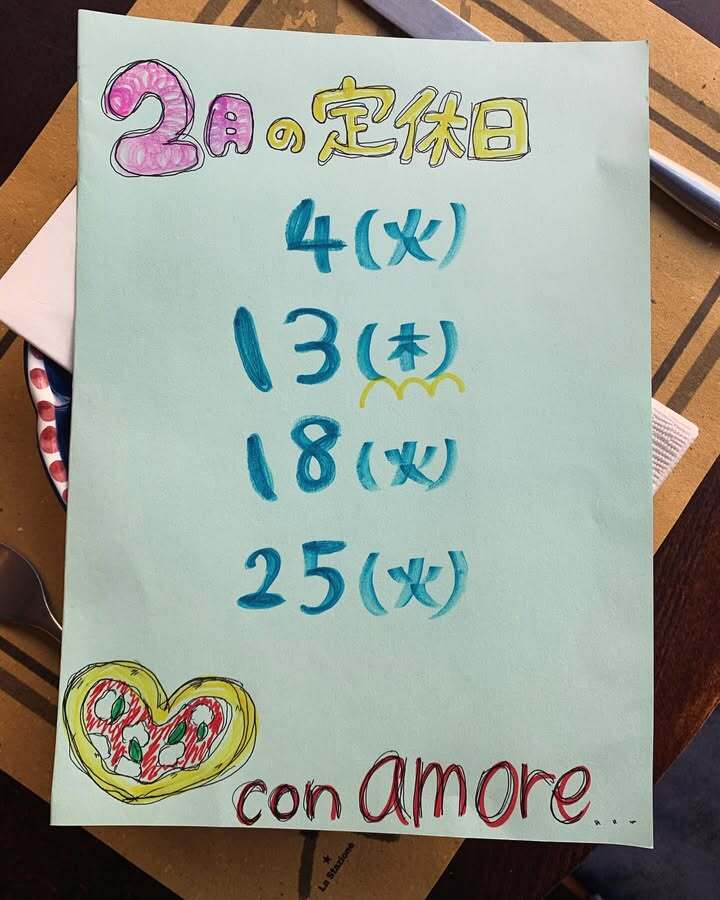 2月の定休日
4(火)
13(木)
18(火)
25(火)
con amore...
La Stazione